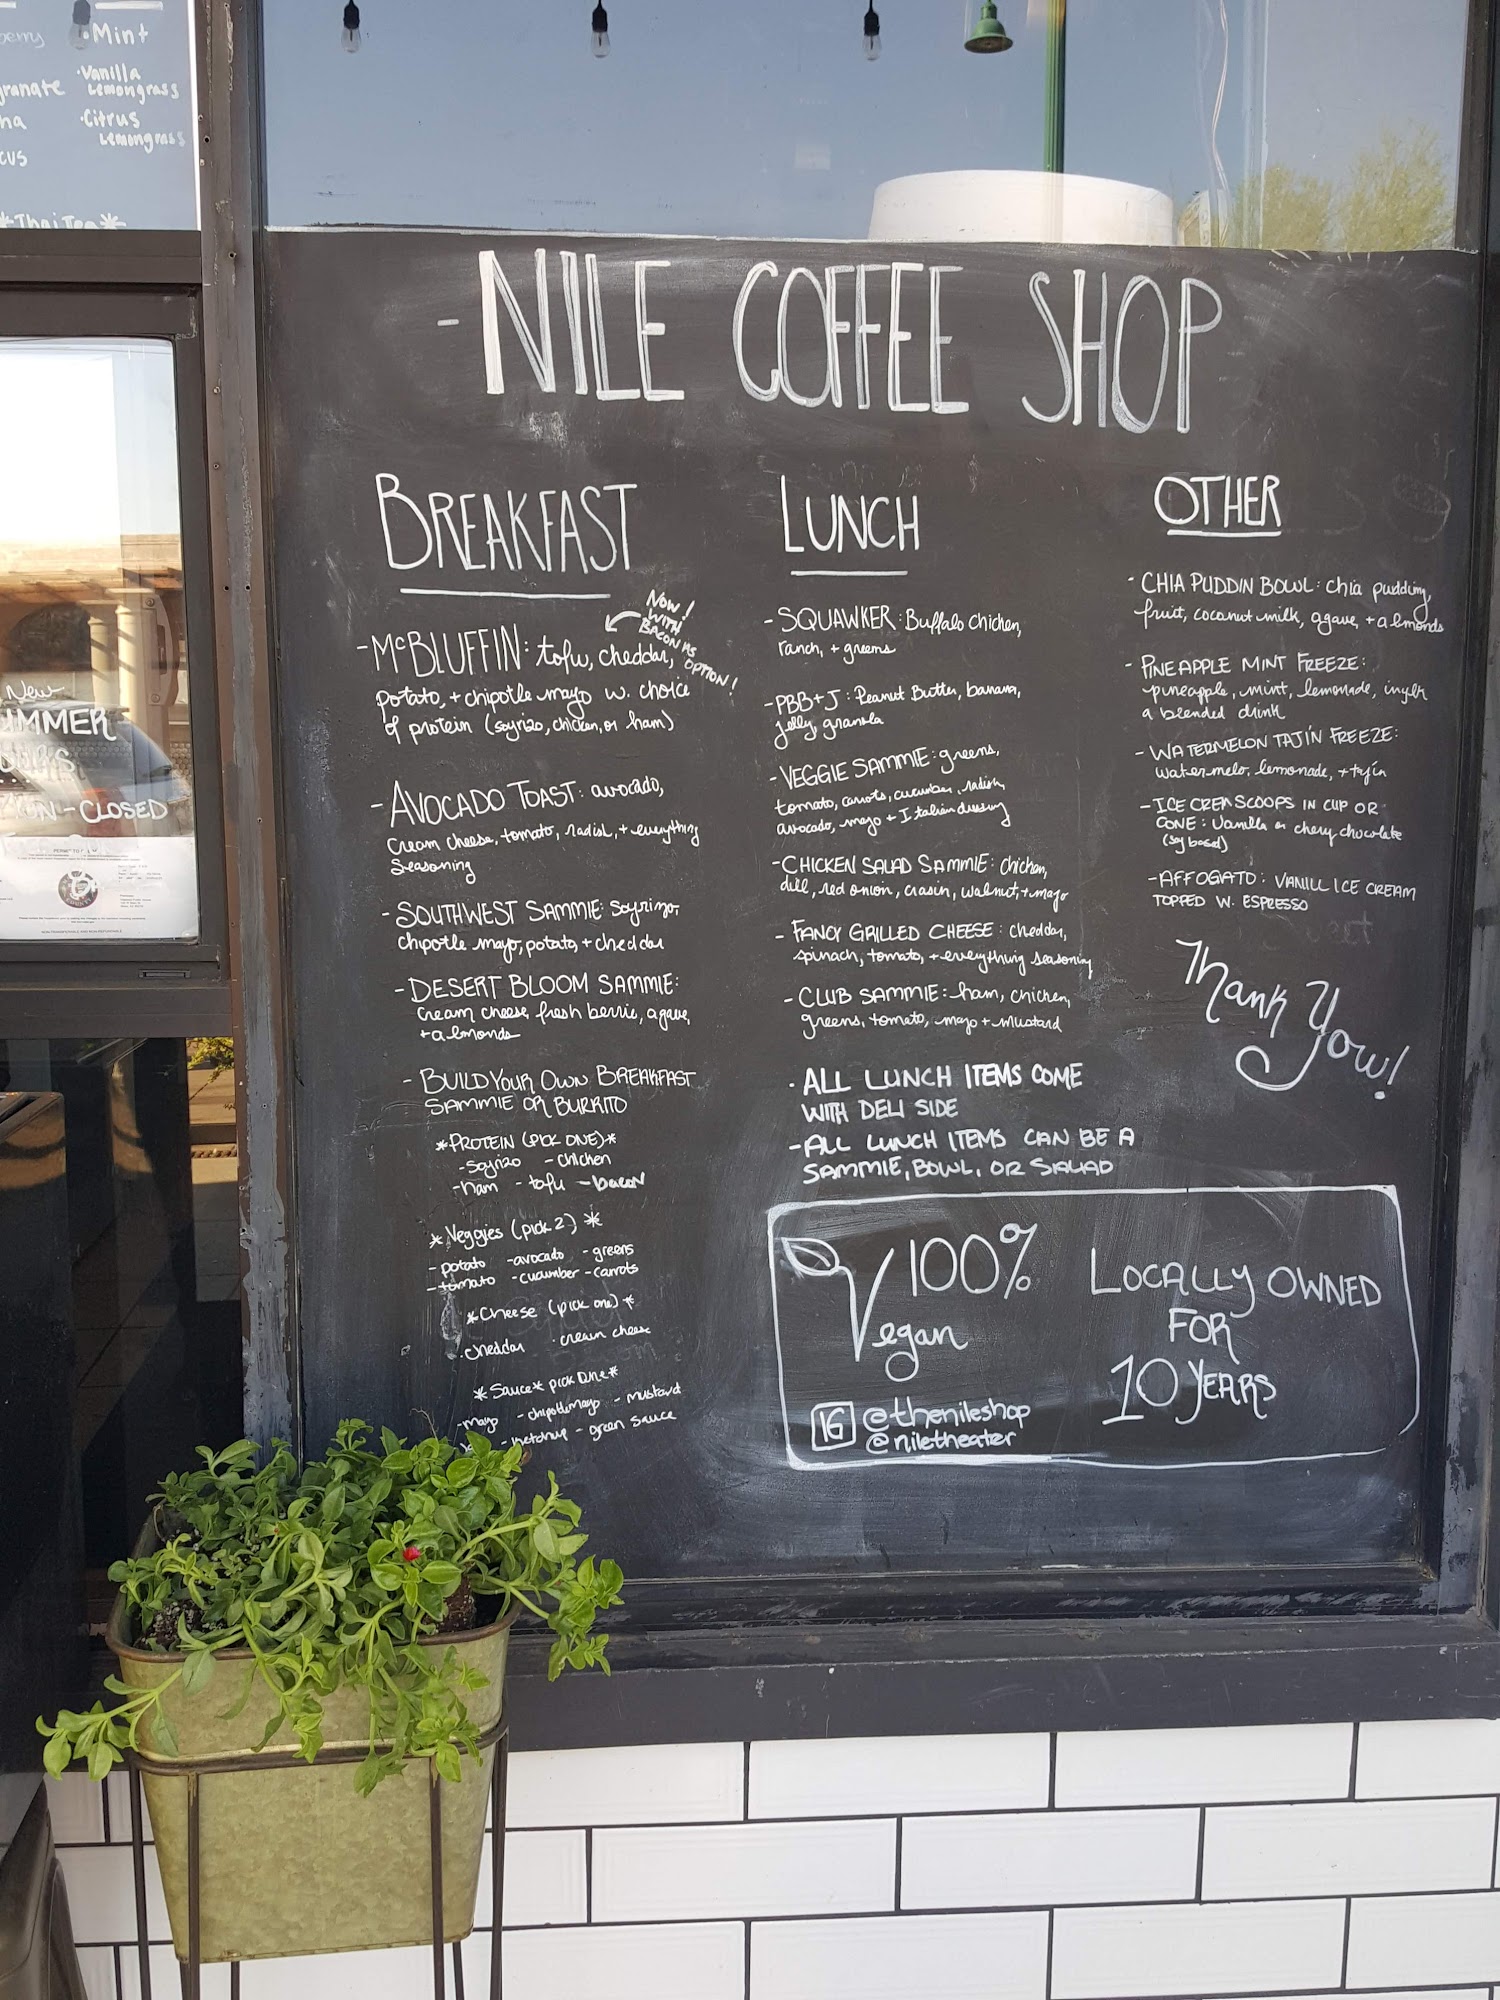 Mint
Vanilla
Lemongrass
Citrus
Lemongrass
*Thai Tea*
New
CLOSED
- NILE COFFEE SHOP
BREAKFAST
NOW!
WITH
BACON AS
OPTION!
- McBLUFFIN: tofu, cheddar,
potato, + chipotle mayo w. choice
of protein (soyrizo, chicken, or ham)
- AVOCADO TOAST: avocado,
cream cheese, tomato, radish, + everything
seasoning
- SOUTHWEST SAMMIE: Soyrizo,
chipotle mayo, potato, + cheddar
- DESERT BLOOM SAMMIE:
cream cheese, fresh berrie, agave,
+ almonds
- BUILD YOUR OWN BREAKFAST
SAMMIE OR BURRITO
*PROTEIN (PICK ONE)*
- soyrizo - chicken
- ham - tofu - bacon
*Veggies (pick 2)*
- potato - avocado - greens
- tomato - cucumber - carrots
*Cheese (pick one)*
· cheddar · cream cheese
*Sauce* pick one*
- mayo - chipotle mayo - mustard
- ketchup - green sauce
LUNCH
- SQUAWKER: Buffalo chicken,
ranch, + greens
- PBB+J: Peanut Butter, banana,
jelly, granola
- VEGGIE SAMMIE: greens,
tomato, carrots, cucumber, radish,
avocado, mayo + Italian dressing
- CHICKEN SALAD SAMMIE: chicken,
dill, red onion, crasin, walnut, + mayo
- FANCY GRILLED CHEESE: cheddar,
spinach, tomato, + everything seasoning
- CLUB SAMMIE: ham, chicken,
greens, tomato, mayo + mustard
· ALL LUNCH ITEMS COME
WITH DELI SIDE
- ALL LUNCH ITEMS CAN BE A
SAMMIE, BOWL, OR SALAD
OTHER
- CHIA PUDDIN BOWL: chia pudding,
fruit, coconut milk, agave, + almonds
- PINEAPPLE MINT FREEZE:
pineapple, mint, lemonade, in
a blended drink
- WATERMELON TAJÍN FREEZE:
watermelo, lemonade, + tajín
- ICE CREM SCOOPS IN CUP OR
CONE: Vanilla or cherry chocolate
(soy based)
- AFFOGATO: VANILL ICE CREAM
TOPPED W. ESPRESSO
Thank You!
100%
Vegan
LOCALLY OWNED
FOR
10 YEARS
IG @thenileshop
@niletheater